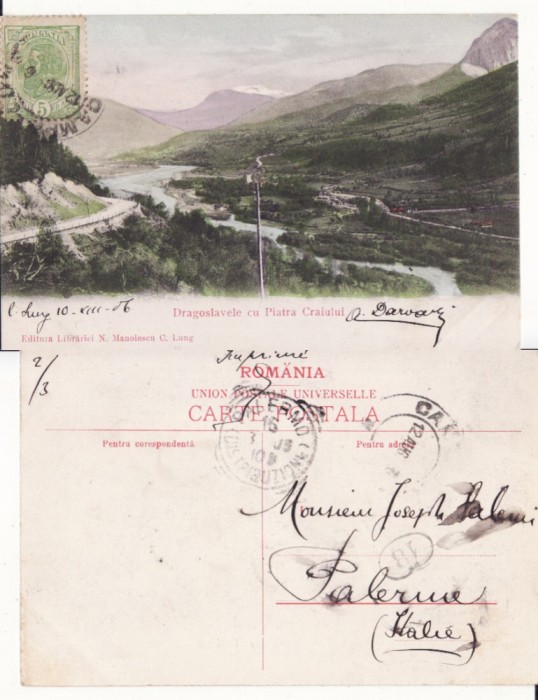 ROMANIA
5
12 AUG
Dragoslavele cu Piatra Craiului
C. Lung 10-VIII-06
Editura Librăriei N. Manolescu C. Lung
2/3
Imprimé
ROMÂNIA
UNION POSTALE UNIVERSELLE
CARTE POSTALA
Pentru corespondentă
Pentru adresă
12 AUG
Monsieur Joseph
18
Palerme
(Italie)